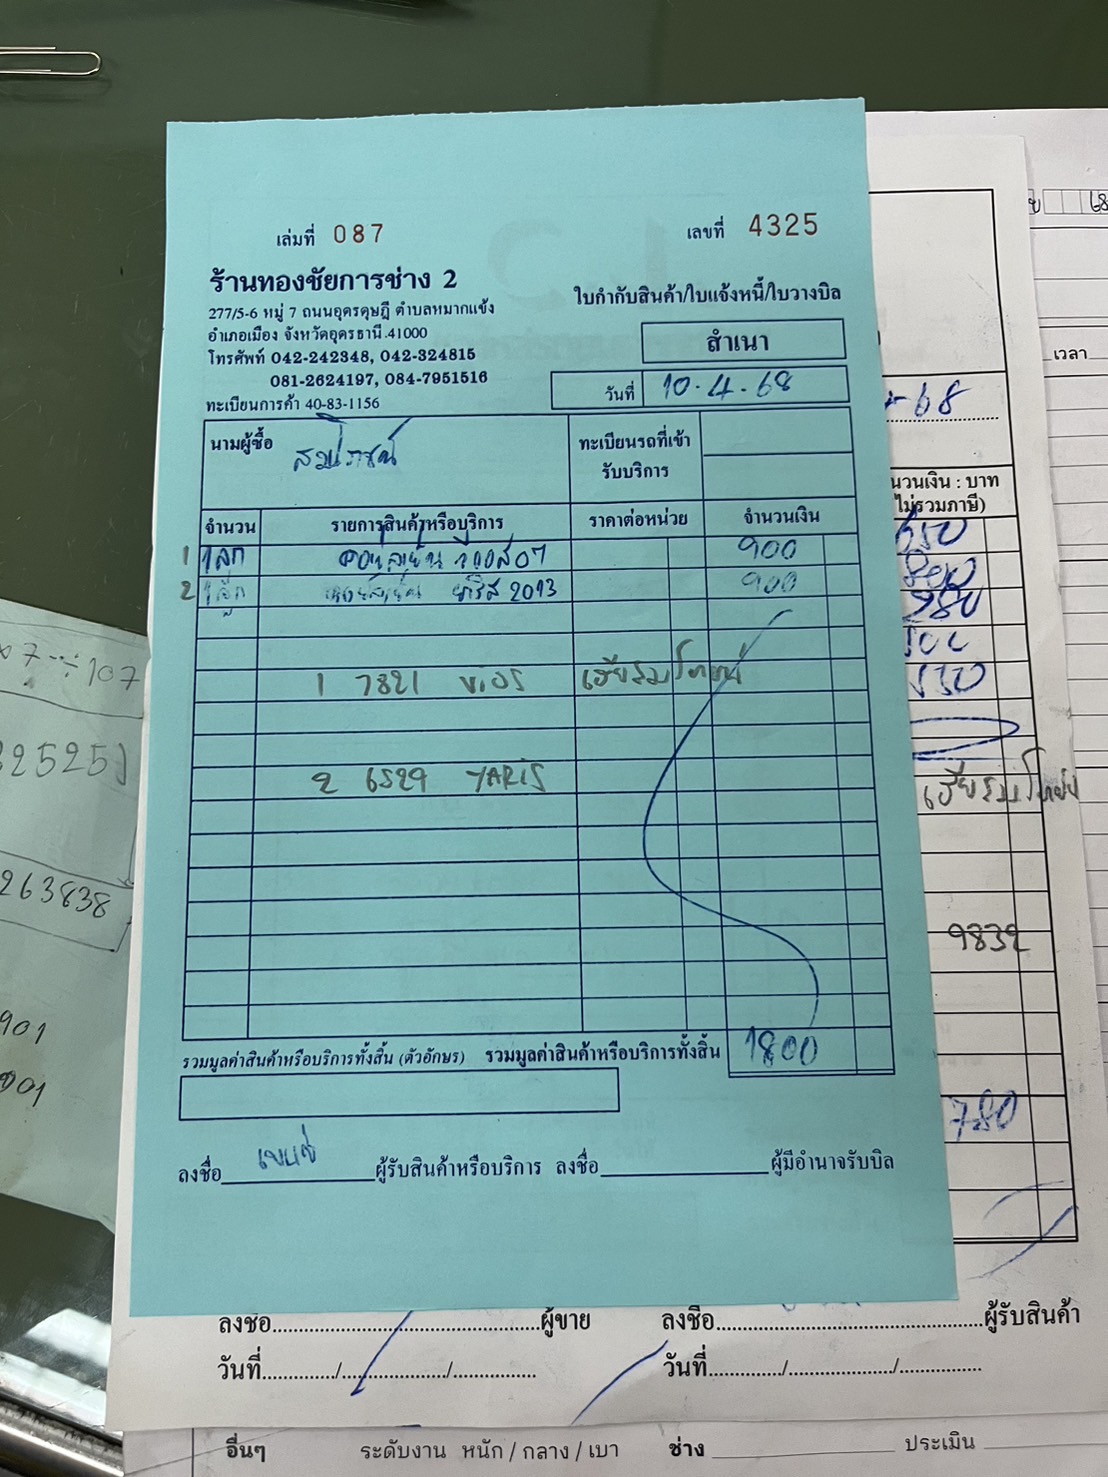 เล่มที่ 087
เลขที่ 4325
ร้านทองชัยการช่าง 2
277/5-6 หมู่ 7 ถนนอุดรดุษฎี ตำบลหมากแข้ง
อำเภอเมือง จังหวัดอุดรธานี.41000
โทรศัพท์ 042-242348, 042-324815
081-2624197, 084-7951516
ทะเบียนการค้า 40-83-1156
ใบกำกับสินค้า/ใบแจ้งหนี้/ใบวางบิล
สำเนา
วันที่ 10.4.68
นามผู้ซื้อ
ทะเบียนรถที่เข้า
รับบริการ
จำนวน รายการสินค้าหรือบริการ ราคาต่อหน่วย จำนวนเงิน
1 1 ลูก 900
2 1 ลูก ยาริส 2013 900
1 7821
2 6529 YARiS
รวมมูลค่าสินค้าหรือบริการทั้งสิ้น (ตัวอักษร) รวมมูลค่าสินค้าหรือบริการทั้งสิ้น 1800
ลงชื่อ ผู้รับสินค้าหรือบริการ ลงชื่อ ผู้มีอำนาจรับบิล
เวลา
68
นวนเงิน : บาท
ไม่รวมภาษี)
650
800
980
9832
780
107
32525
263838
901
901
ลงชื่อ ผู้ขาย ลงชื่อ ผู้รับสินค้า
วันที่ / / วันที่ / /
อื่นๆ ระดับงาน หนัก / กลาง / เบา ช่าง ประเมิน